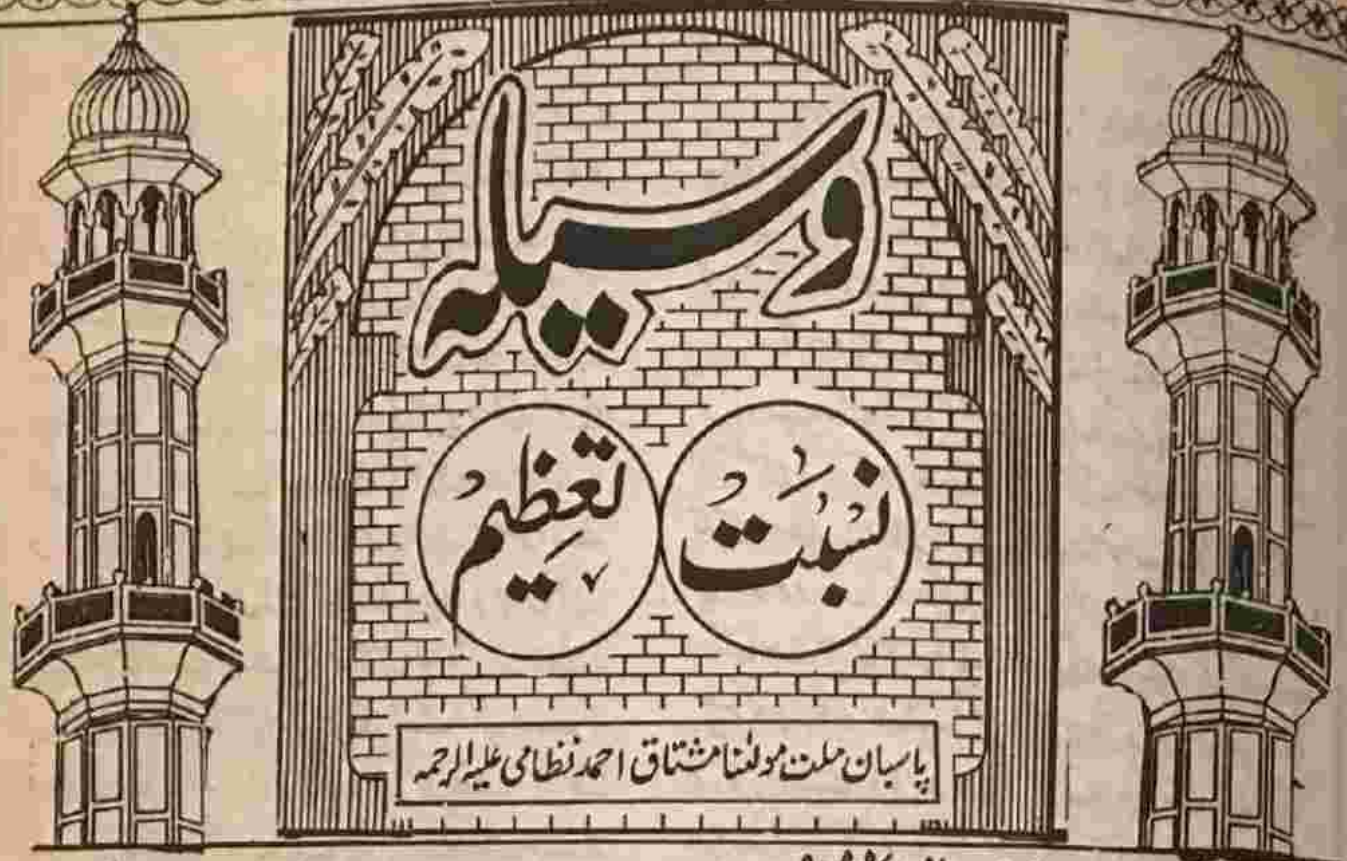 وسیلہ
نسبت
تعظیم
پاسبان ملت مولٰنا مشتاق احمد نظامی علیہ الرحمہ